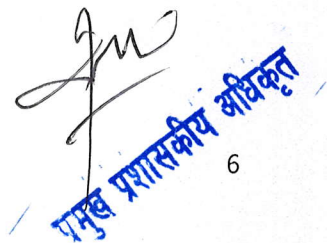 प्रमुख प्रशासकीय अधिकृत
6